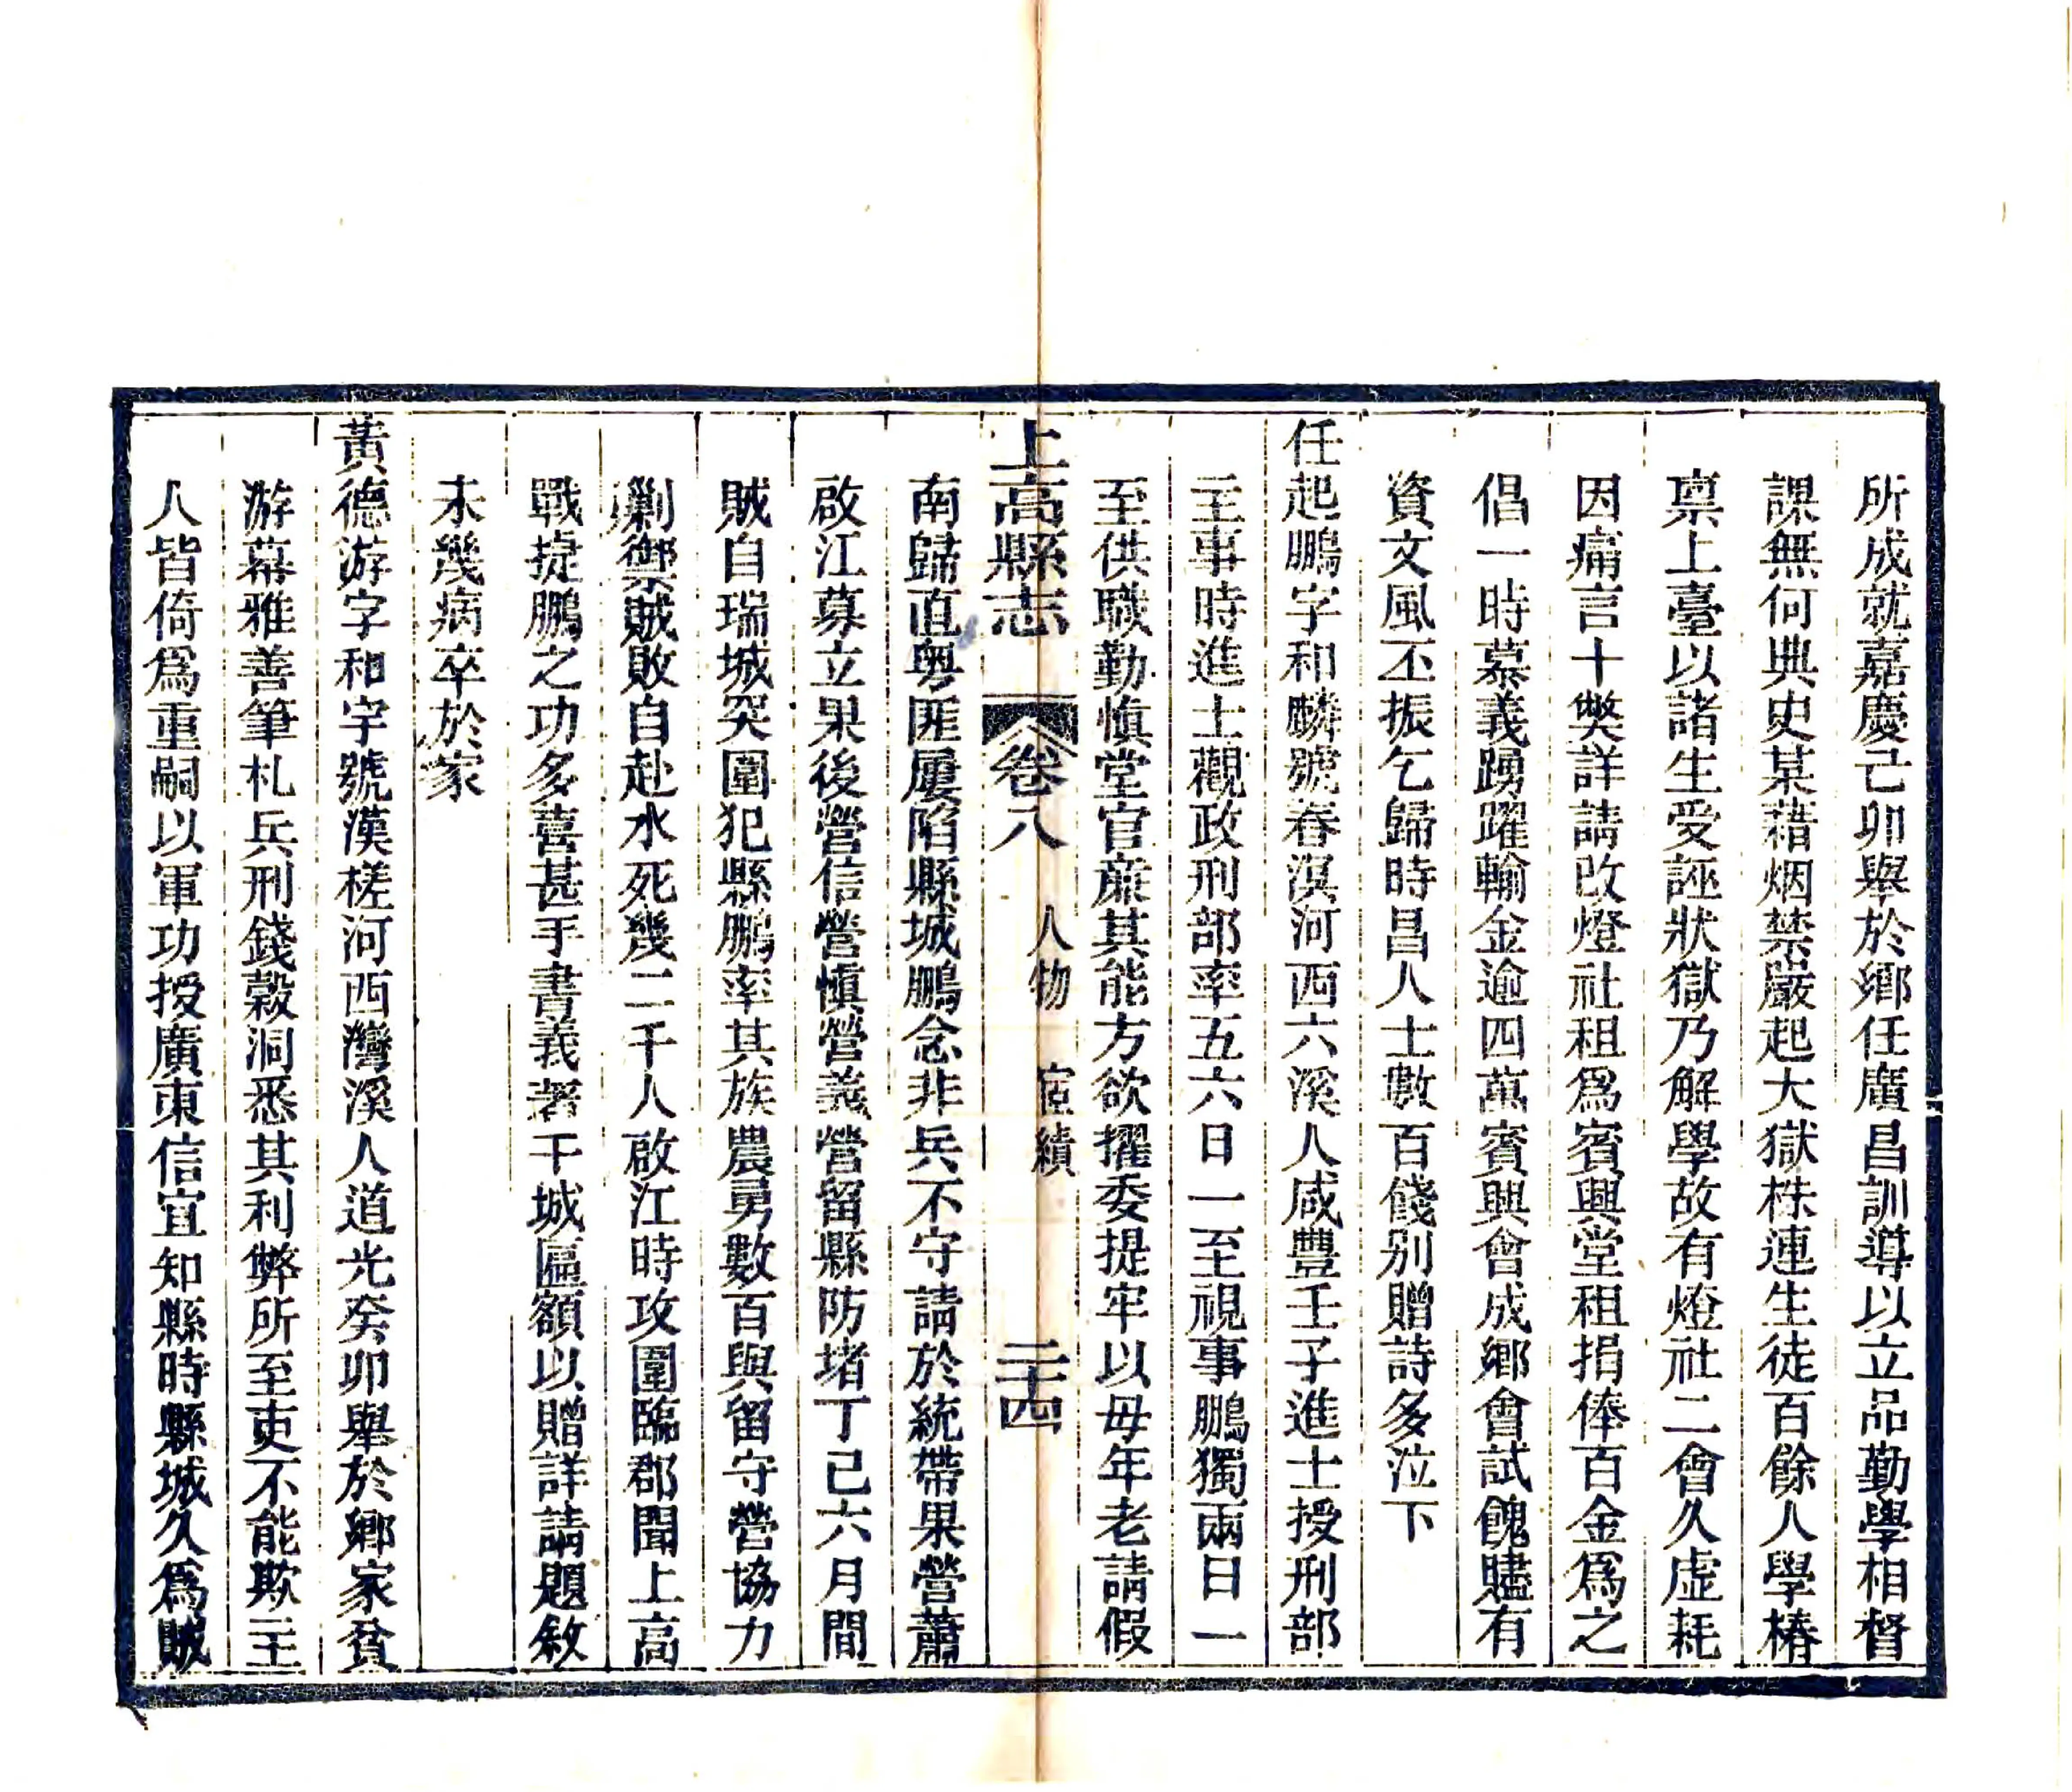 所成就嘉慶己卯舉於鄉任廣昌訓導以立品勤學相督
課無何典史某藉烟禁嚴起大獄株連生徒百餘人學椿
禀上臺以諸生受誣狀獄乃解學故有燈社二會久虛耗
因痛言十獘詳請改燈社租爲賓興堂租捐俸百金爲之
倡一時慕義踴躍輸金逾四萬賓興會成鄉會試餽贐有
資文風丕振乞歸時昌人士數百餞别贈詩多泣下
任起鵬字和麟號春溟河西六溪人咸豐壬子進士授刑部
主事時進士觀政刑部率五六日一至視事鵬獨兩日一
至供職勤愼堂官廉其能方欲擢委提牢以母年老請假
上高縣志 卷八 人物 宦績 二十四
南歸直粤匪屢陷縣城鵬念非兵不守請於統帶果營蕭
啟江募立果後營信營愼營義營留縣防堵丁巳六月間
賊自瑞城突圍犯縣鵬率其族農勇數百與留守營協力
剿禦賊敗自赴水死幾二千人啟江時攻圍臨郡聞上高
戰捷鵬之功多喜甚手書義著干城匾額以贈詳請題敘
未幾病卒於家
黃德游字和宇號漢槎河西灣溪人道光癸卯舉於鄉家貧
游幕雅善筆札兵刑錢穀洞悉其利弊所至吏不能欺主
人皆倚爲重嗣以軍功授廣東信宜知縣時縣城久爲賊